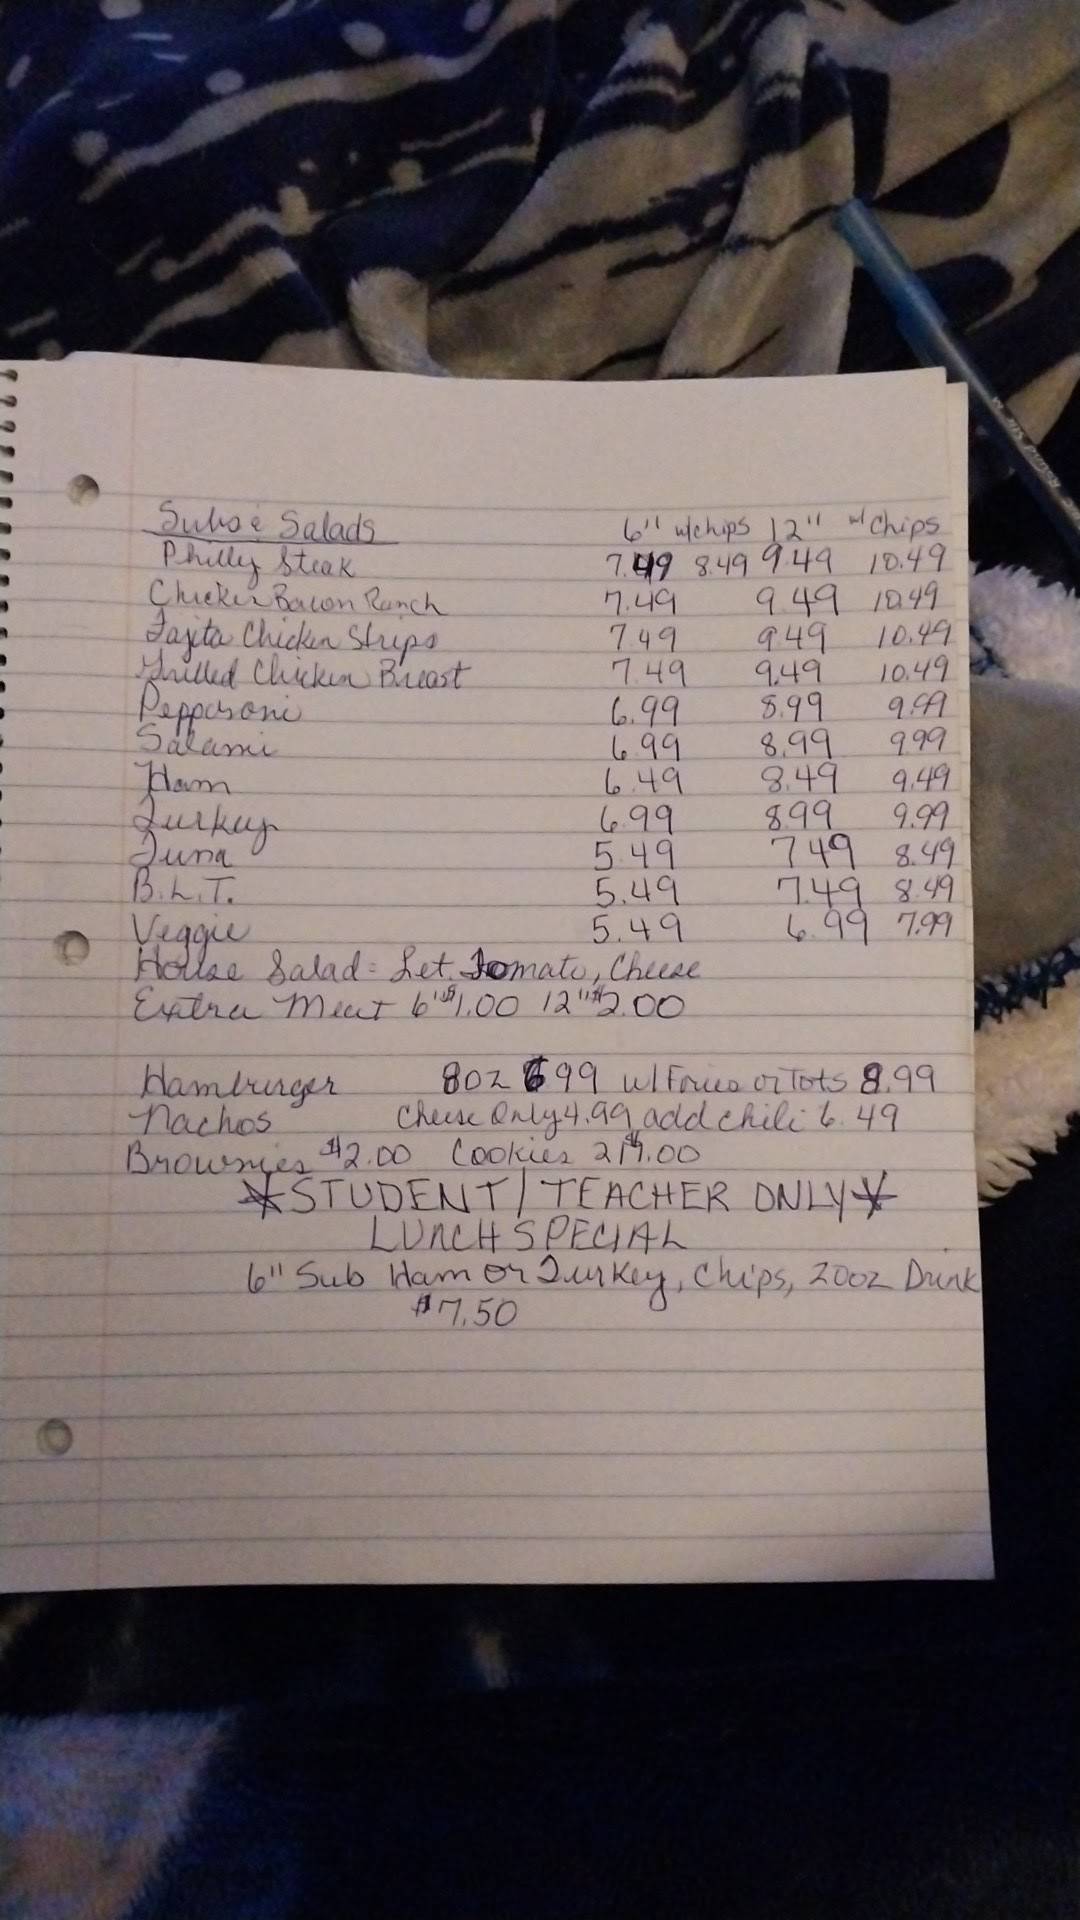 Subs & Salads 6" w/chips 12" w/ Chips
Philly Steak 7.49 8.49 9.49 10.49
Chicken Bacon Ranch 7.49 9.49 10.49
Fajita Chicken Strips 7.49 9.49 10.49
Grilled Chicken Breast 7.49 9.49 10.49
Pepperoni 6.99 8.99 9.99
Salami 6.99 8.99 9.99
Ham 6.49 8.49 9.49
Turkey 6.99 8.99 9.99
Tuna 5.49 7.49 8.49
B.L.T. 5.49 7.49 8.49
Veggie 5.49 6.99 7.99
House Salad = Let. Tomato, Cheese
Extra Meat 6" $1.00 12" $2.00
Hamburger 8oz 6.99 w/Fries or Tots 8.99
Nachos Cheese Only 4.99, add chili 6.49
Brownies $2.00 Cookies 2/$1.00
*STUDENT/TEACHER ONLY*
LUNCH SPECIAL
6" Sub Ham or Turkey, Chips, 20oz Drink
$7.50